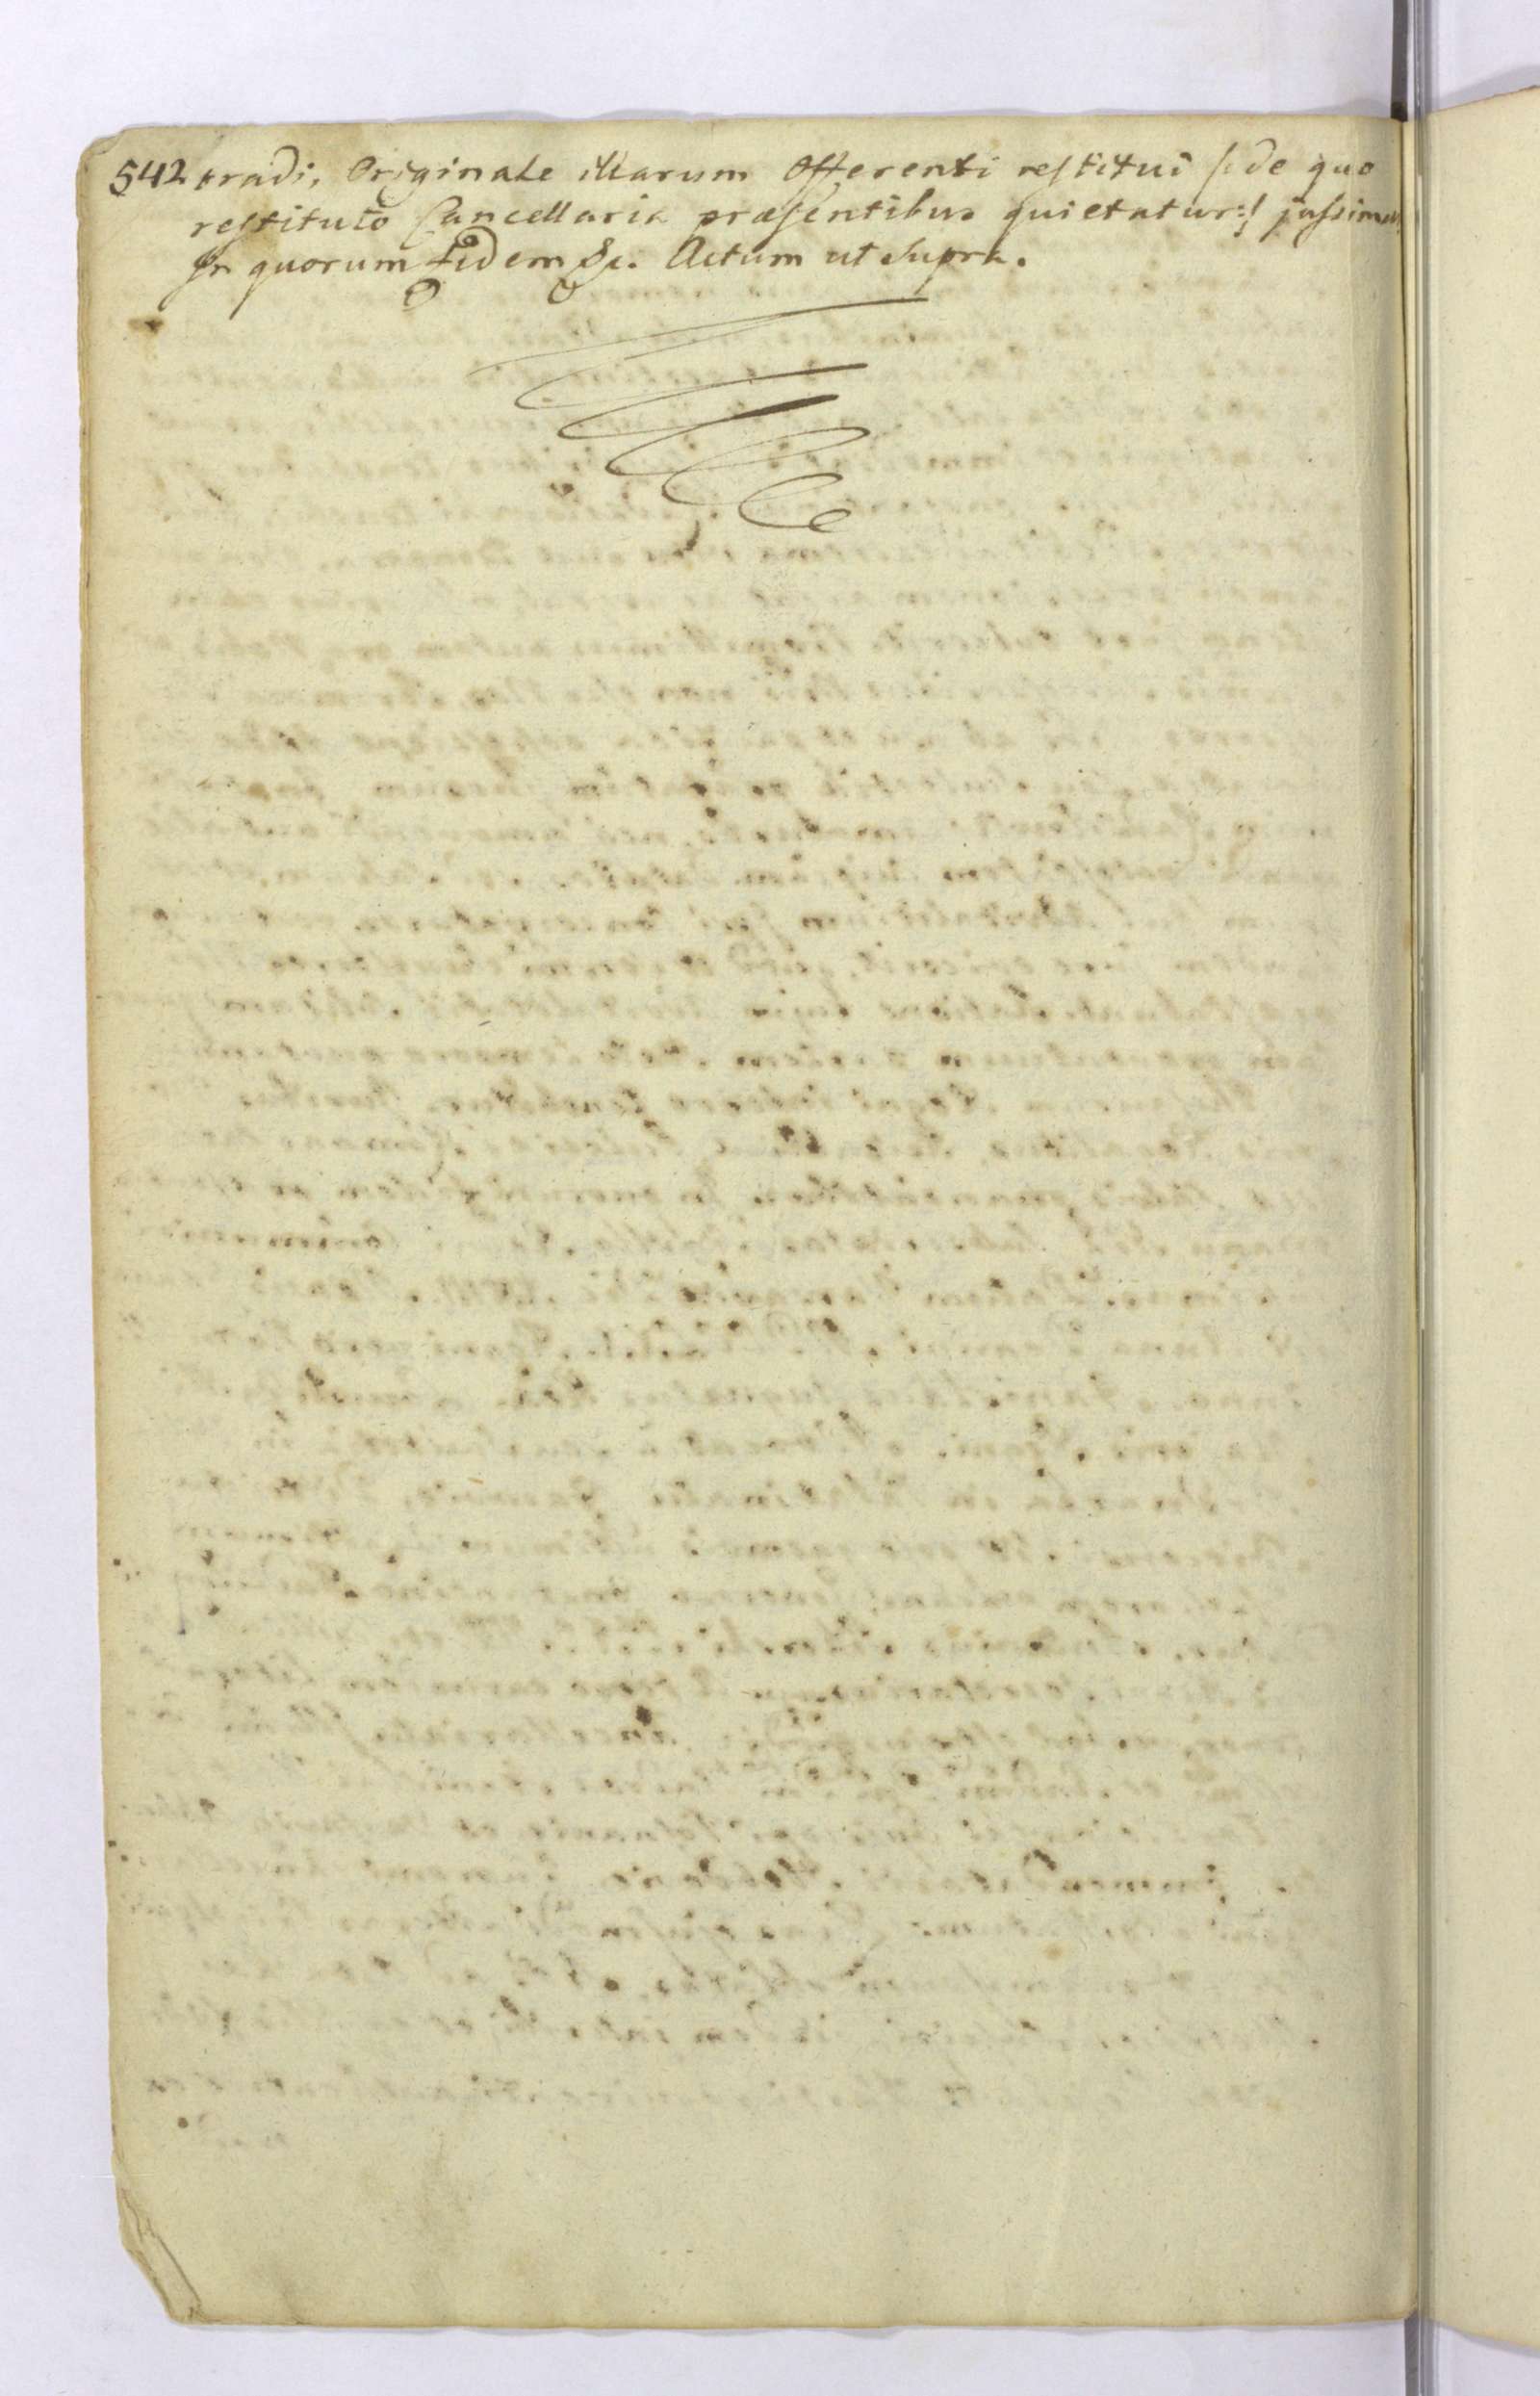 542 tradi, Originale illarum Offerenti restitui /: de quo
restituto Cancellaria præsentibus quietatur :/ jussimus.
In quorum Fidem &c. Actum ut supra.